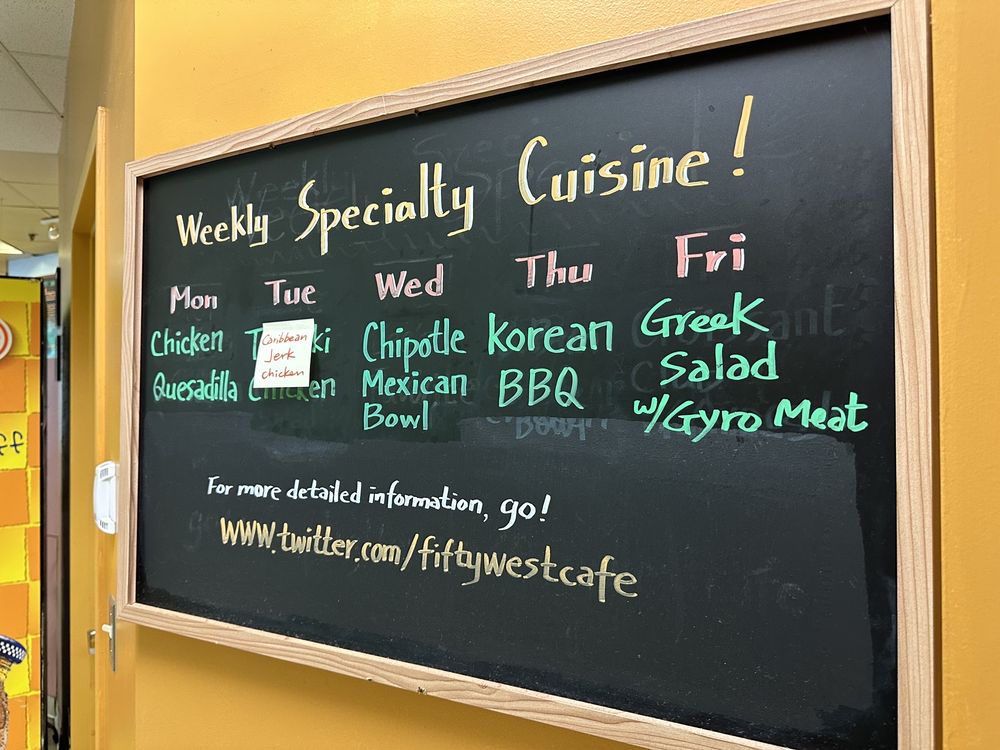 Weekly Specialty Cuisine!
Mon Tue Wed Thu Fri
Chicken
Quesadilla
Caribbean
Jerk
chicken
Chicken
Chipotle
Mexican
Bowl
Korean
BBQ
Greek
Salad
w/Gyro Meat
For more detailed information, go!
www.twitter.com/fiftywestcafe